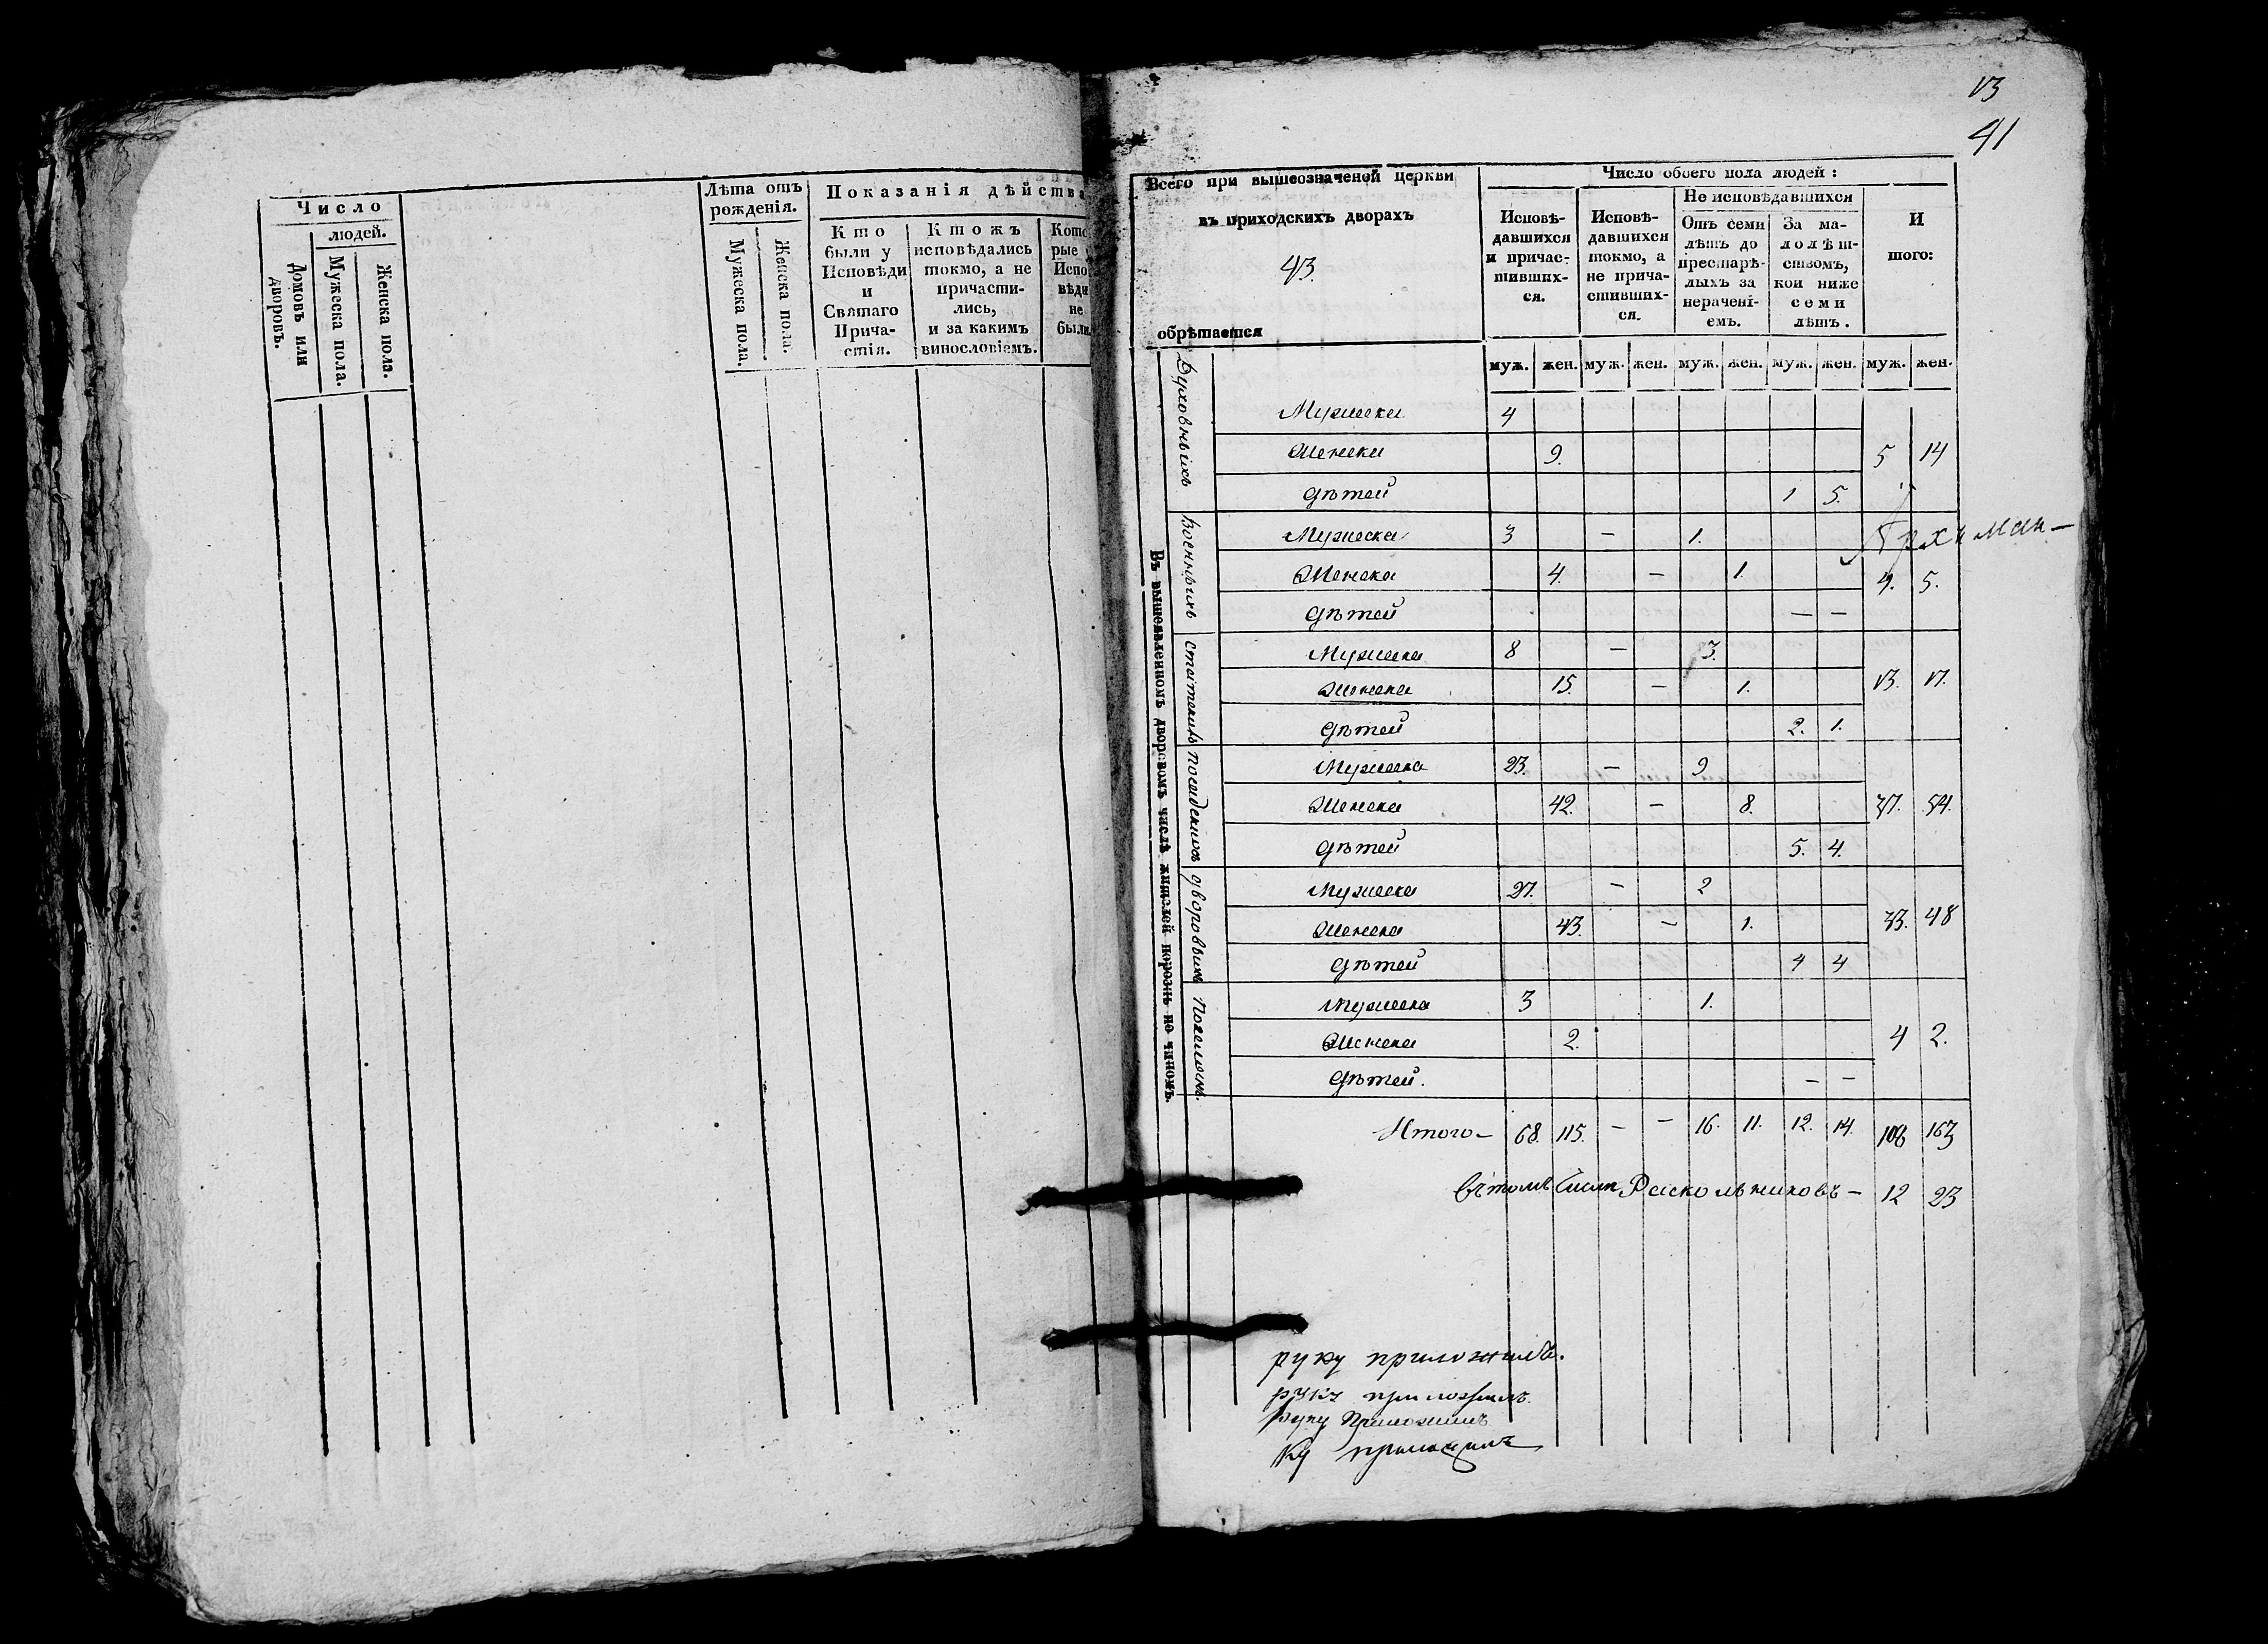 Число
людей.
Домовъ или дворовъ.
Мужеска пола.
Женска пола.
Лѣта отъ
рожденія.
Мужеска пола.
Женска пола.
Показанія дѣйства
Кто
были у
Исповѣди
и
Святаго
Прича-
стія.
Ктожъ
исповѣдались
токмо, а не
причасти-
лись,
и за какимъ
винословіемъ.
Кото-
рые
Испо-
вѣди
не
были.
13
41
Всего при вышеозначеной церкви
въ приходскихъ дворахъ
43.
обрѣтается
Число обоего пола людей:
Исповѣ-
давшихся
и причас-
тивших-
ся.
Исповѣ-
давшихся
токмо, а
не прича-
стивших-
ся.
Не исповѣдавшихся
Отъ семи
лѣтъ до
престарѣ-
лыхъ за
нерачені-
емъ.
За ма-
лолѣт-
ствомъ,
кои ниже
семи
лѣтъ.
И
того:
муж. жен. муж. жен. муж. жен. муж. жен. муж. жен.
Въ вышеявленномъ дворовомъ числѣ жителей порознь по чиномъ.
Духовныхъ
Мужеска 4
Женска 9. 5 14
Дѣтей 1 5.
Военныхъ
Мужеска 3 — 1.
Архиман—
Женска 4. — 1. 4. 5.
Дѣтей — —
Статскихъ
Мужеска 8 — 3.
Женска 15. — 1. 13. 17.
Дѣтей 2. 1.
Посадскихъ
Мужеска 23. — 9
Женска 42. — 8. 37. 54.
Дѣтей 5. 4.
Дворовыхъ
Мужеска 27. — 2
Женска 43. — 1. 33. 48
Дѣтей 4 4
Поселянъ.
Мужеска 3 1.
Женска 2. 4 2.
Дѣтей. — —
Итого— 68. 115. — — 16. 11. 12. 14. 163
Въ томъ числѣ Раскольниковъ— 12 23
руку приложилъ.
руку приложилъ
руку Приложилъ
ку приложилъ